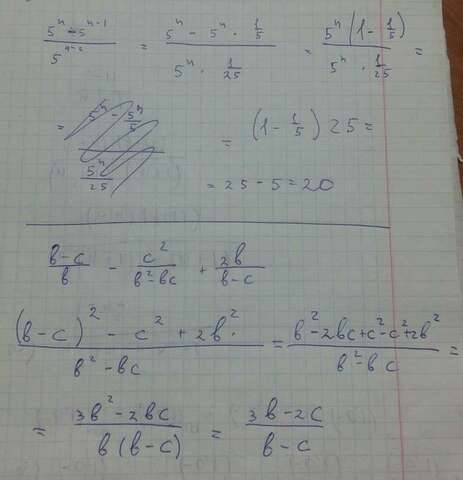 (5^n - 5^(n-1)) / 5^(n-2) = (5^n - 5^n · 1/5) / (5^n · 1/25) = 5^n (1 - 1/5) / (5^n · 1/25) =
= = (1 - 1/5) 25 =
= 25 - 5 = 20
(b-c)/b - c²/(b²-bc) + 2b/(b-c)
((b-c)² - c² + 2b²·) / (b² - bc) = (b² - 2bc + c² - c² + 2b²) / (b² - bc) =
= (3b² - 2bc) / (b(b-c)) = (3b - 2c) / (b - c)